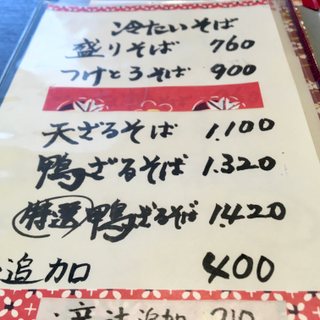 冷たいそば
盛りそば 760
つけとろそば 900
天ざるそば 1.100
鴨ざるそば 1.320
特選 鴨ざるそば 1.420
追加 400
追加 210